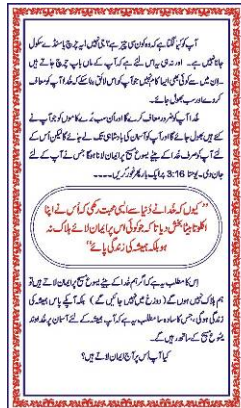 آپ کو کیا لگتا ہے کہ وہ کون سی چیز ہے؟ جی نہیں! یہ چرچ یا سنڈے سکول
جانا نہیں ہے۔ اور نہ ہی یہ اس لئے ہے کہ آپ کے ماں باپ چرچ جاتے ہیں
۔ ان میں سے کوئی بھی ایسا کام نہیں جو آپ کو اس لائق بنا سکے کہ خدا آپ کو معاف
کر دے اور سب بھول جائے۔
خدا آپ کو ضرور معاف کرے گا اور اُن سب بُرے کاموں کو جو آپ نے
کئے ہیں بھول جائے گا اور آپ کو آسمان کی بادشاہی تک لے جائے گا لیکن اُس کے
لئے آپ کو صرف خدا کے بیٹے یسوع مسیح پر ایمان لانا ہوگا جس نے آپ کے لئے
جان دی۔ یوحنا 3:16 پر ایک بار پھر غور کریں۔۔۔۔
’’کیوں کہ خدا نے دُنیا سے ایسی محبت رکھی کہ اُس نے اپنا
اکلوتا بیٹا بخش دیا تا کہ جو کوئی اُس پر ایمان لائے ہلاک نہ
ہو بلکہ ہمیشہ کی زندگی پائے‘‘
اِس کا مطلب یہ ہے کہ اگر ہم خدا کے بیٹے یسوع مسیح پر ایمان لاتے ہیں تو
ہم ہلاک نہیں ہوں گے (دوزخ میں نہیں جائیں گے) بلکہ آپکے پاس ہمیشہ کی
زندگی ہوگی، جس کا سادہ سا مطلب یہ ہے کہ آپ ہمیشہ کے لئے آسمان پر خداوند
یسوع مسیح کے ساتھ رہیں گے۔
کیا آپ اِس پر آج ایمان لاتے ہیں؟